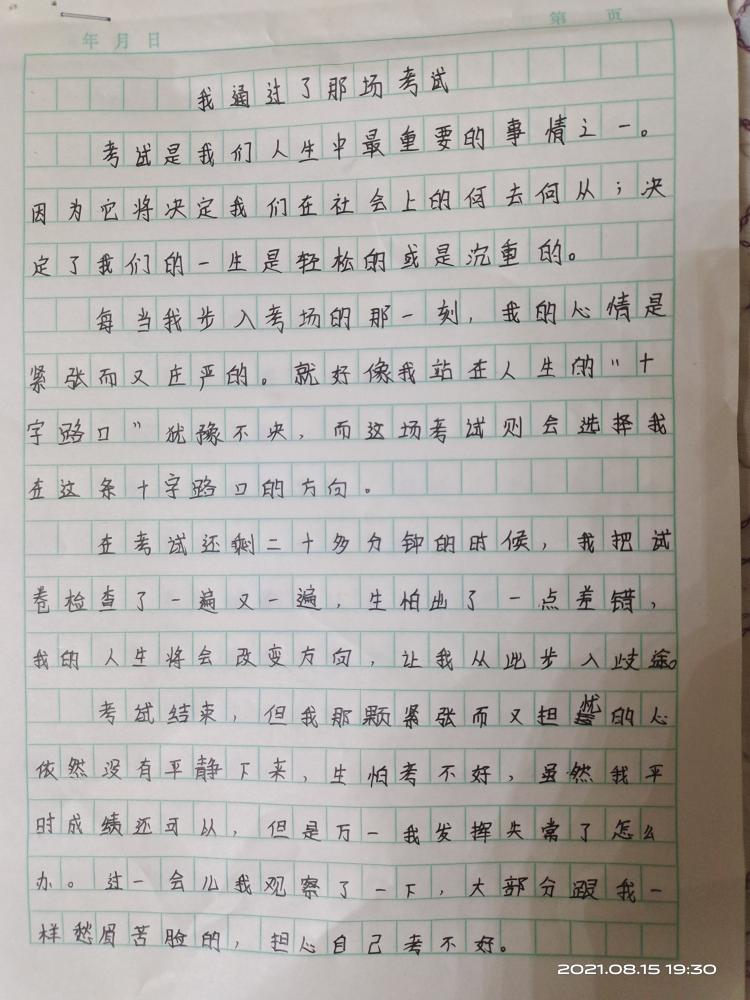 第 页
年 月 日
我通过了那场考试
考试是我们人生中最重要的事情之一。
因为它将决定我们在社会上的何去何从；决
定了我们的一生是轻松的或是沉重的。
每当我步入考场的那一刻，我的心情是
紧张而又庄严的。就好像我站在人生的“十
字路口”犹豫不决，而这场考试则会选择我
在这条十字路口的方向。
在考试还剩二十多分钟的时候，我把试
卷检查了一遍又一遍，生怕出了一点差错，
我的人生将会改变方向，让我从此步入歧途。
考试结束，但我那颗紧张而又担忧的心
依然没有平静下来，生怕考不好，虽然我平
时成绩还可以，但是万一我发挥失常了怎么
办。过一会儿我观察了一下，大部分跟我一
样愁眉苦脸的，担心自己考不好。
2021.08.15 19:30